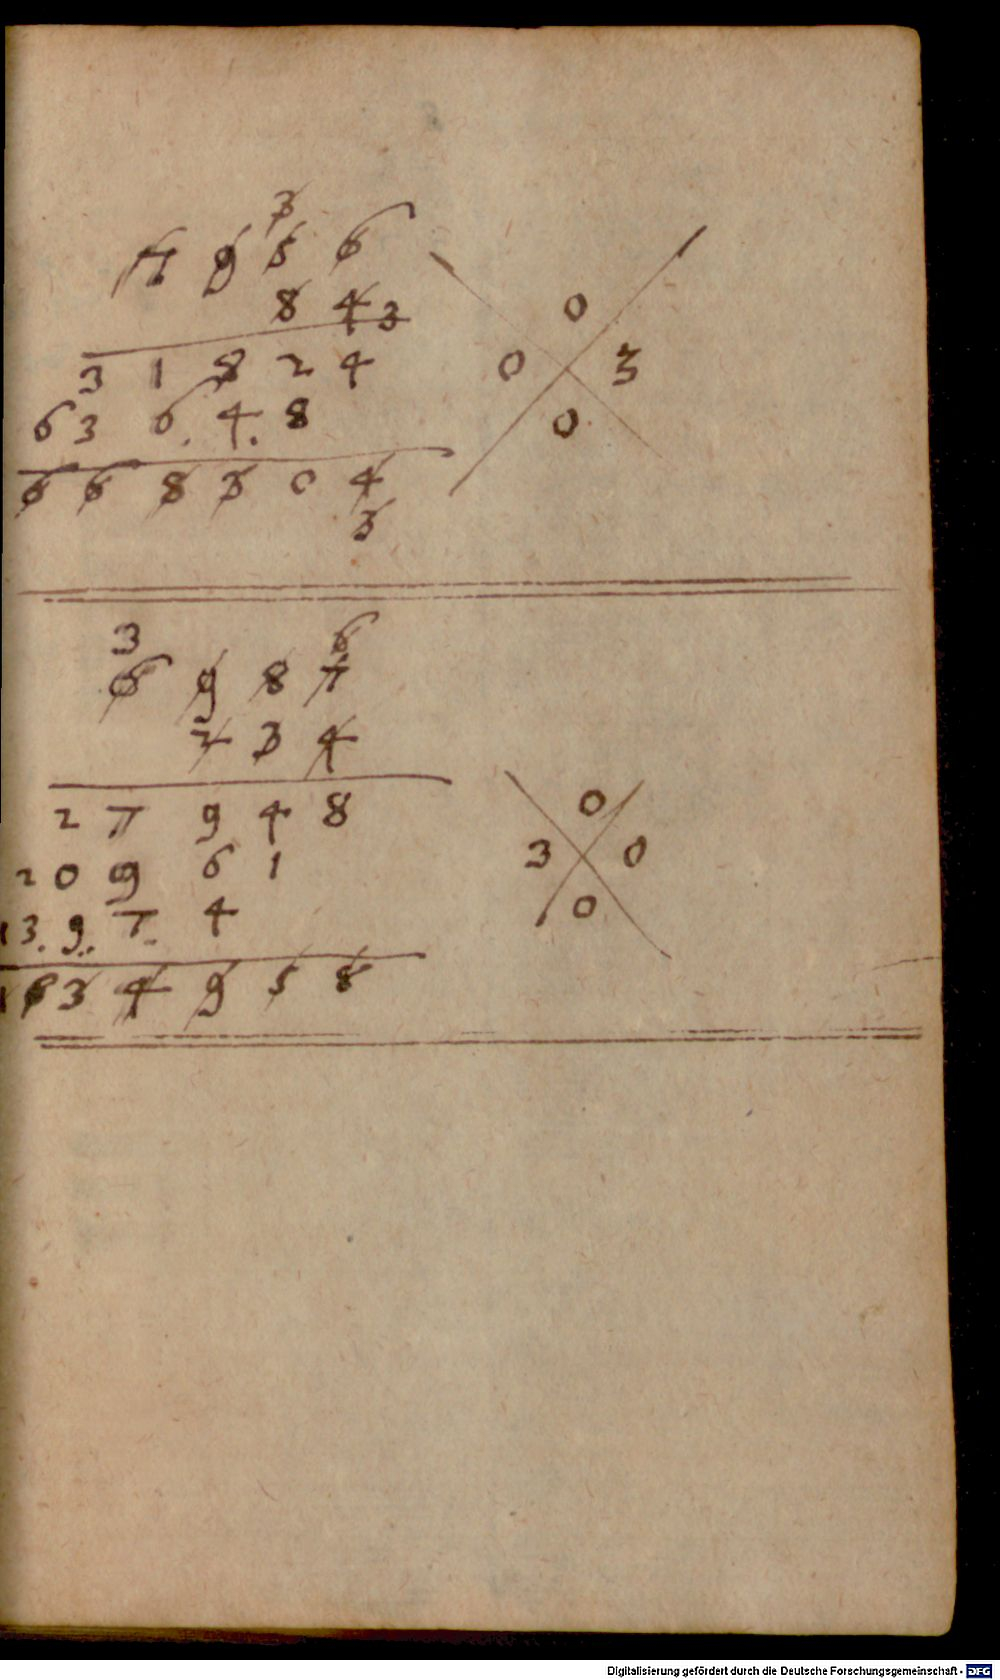 3
7 9 5 6
8 4 3
3 1 8 2 4
6 3 6. 4. 8
6 6 8 3 0 4
3
0
0 3
0
3 6
6 9 8 7
2 3 4
2 7 9 4 8
2 0 9 6 1
1 3. 9.. 7.. 4
1 6 3 4 9 5 8
0
3 0
0
Digitalisierung gefördert durch die Deutsche Forschungsgemeinschaft - DFG